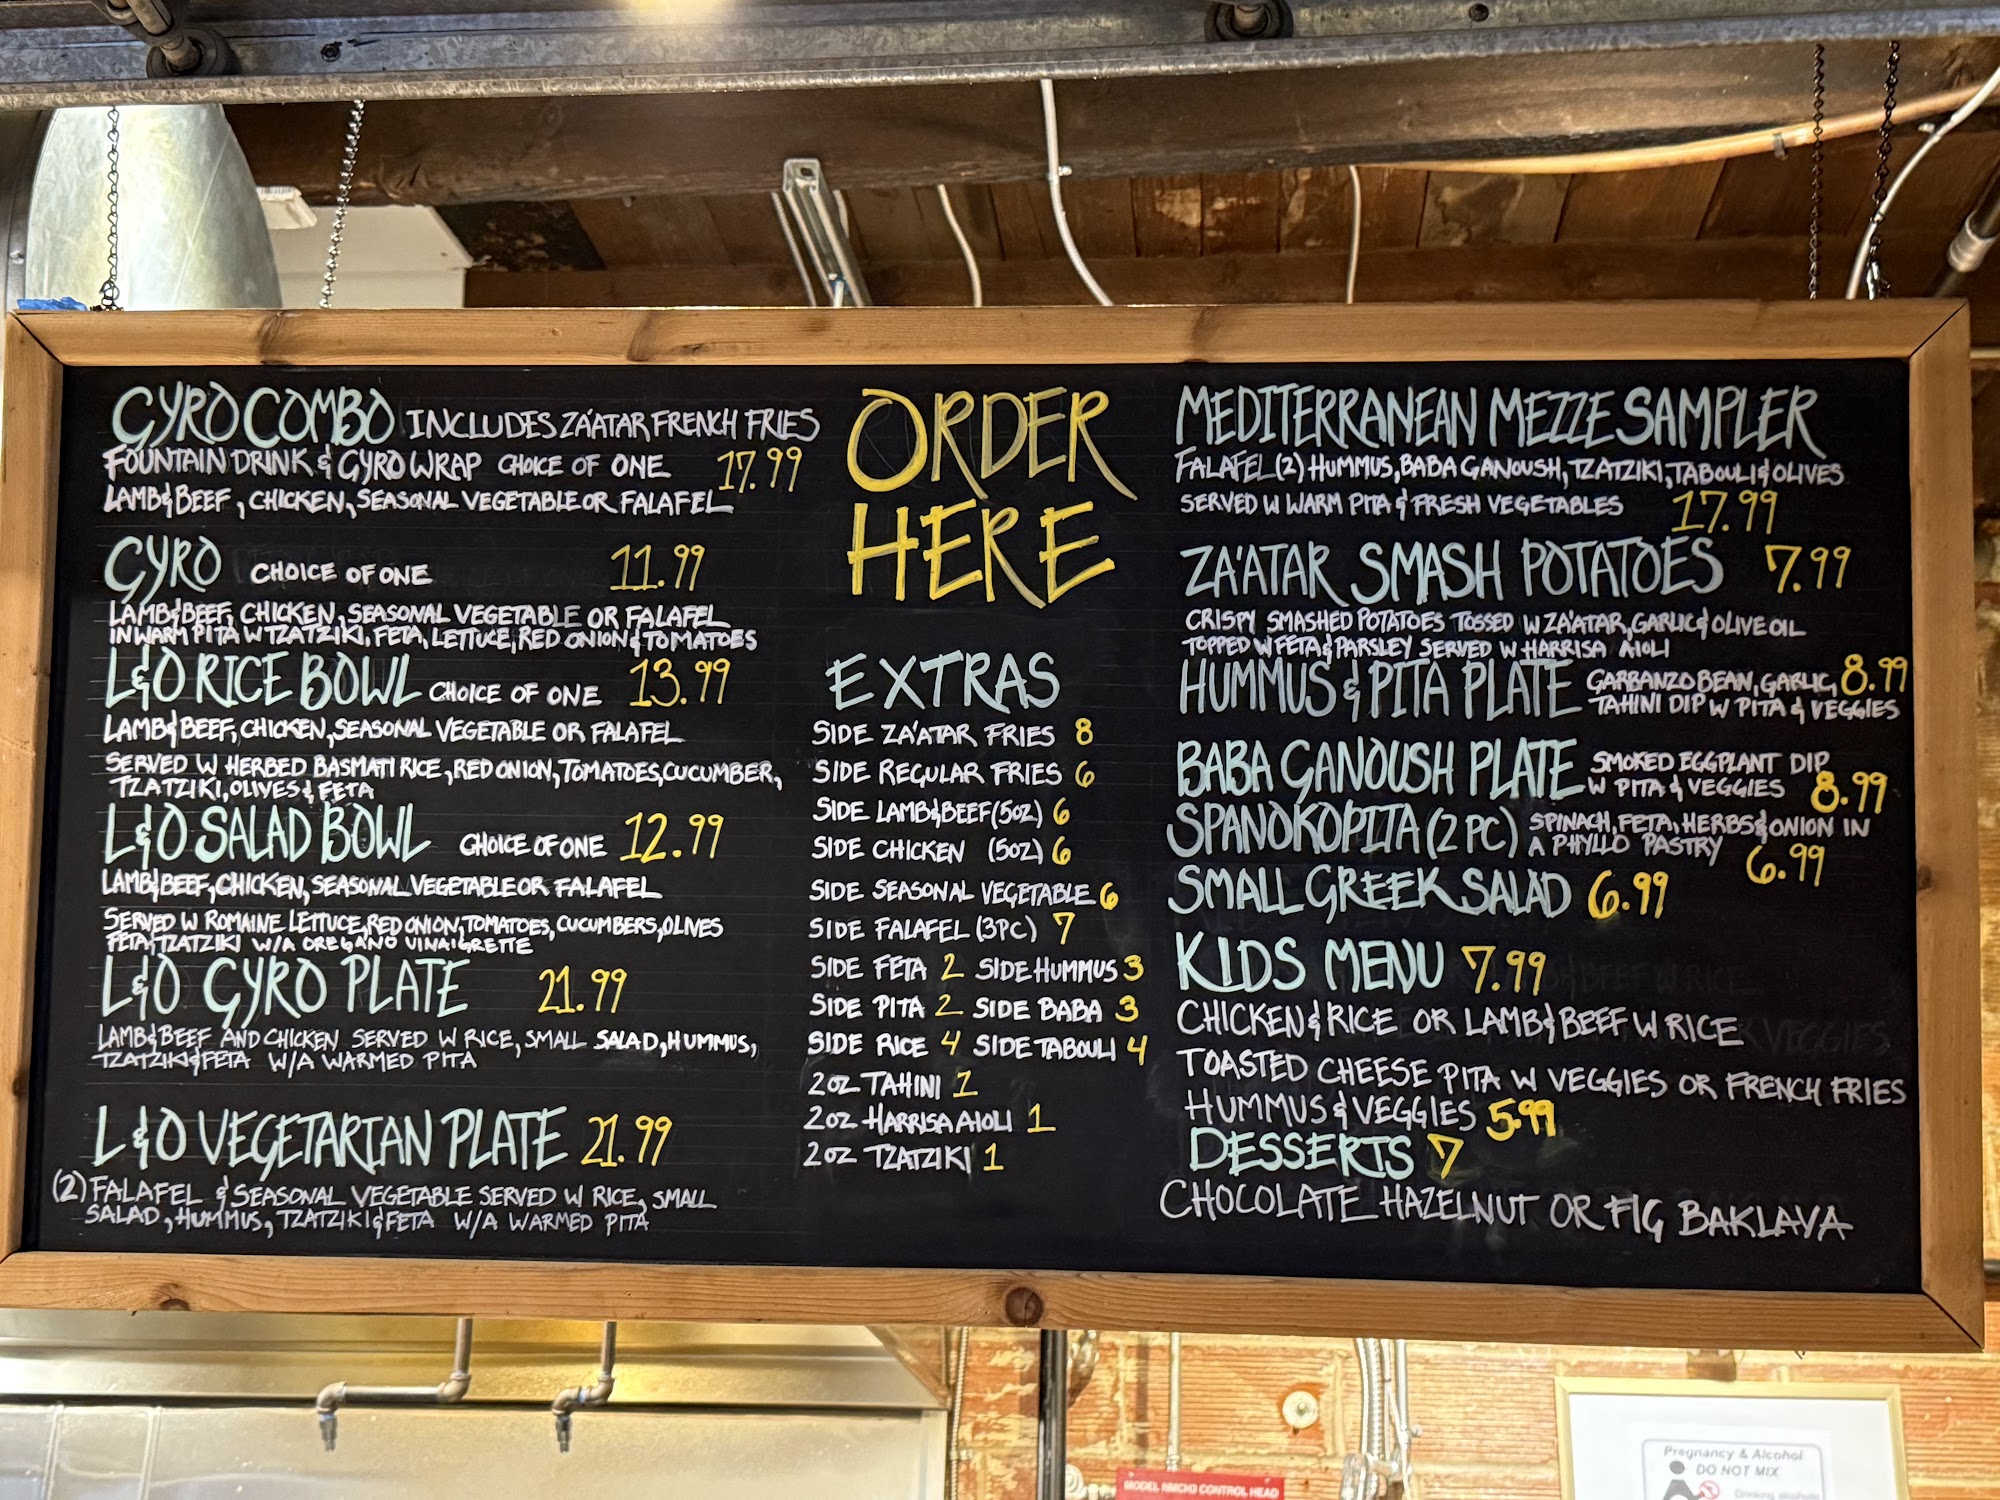 GYRO COMBO INCLUDES ZA'ATAR FRENCH FRIES
FOUNTAIN DRINK & GYRO WRAP CHOICE OF ONE 17.99
LAMB&BEEF, CHICKEN, SEASONAL VEGETABLE OR FALAFEL
GYRO CHOICE OF ONE 11.99
LAMB&BEEF, CHICKEN, SEASONAL VEGETABLE OR FALAFEL
IN WARM PITA W TZATZIKI, FETA, LETTUCE, RED ONION & TOMATOES
L&O RICE BOWL CHOICE OF ONE 13.99
LAMB&BEEF, CHICKEN, SEASONAL VEGETABLE OR FALAFEL
SERVED W HERBED BASMATI RICE, RED ONION, TOMATOES, CUCUMBER,
TZATZIKI, OLIVES & FETA
L&O SALAD BOWL CHOICE OF ONE 12.99
LAMB&BEEF, CHICKEN, SEASONAL VEGETABLE OR FALAFEL
SERVED W ROMAINE LETTUCE, RED ONION, TOMATOES, CUCUMBERS, OLIVES
FETA, TZATZIKI W/A OREGANO VINAIGRETTE
L&O GYRO PLATE 21.99
LAMB&BEEF AND CHICKEN SERVED W RICE, SMALL SALAD, HUMMUS,
TZATZIKI & FETA W/A WARMED PITA
L&O VEGETARIAN PLATE 21.99
(2) FALAFEL & SEASONAL VEGETABLE SERVED W RICE, SMALL
SALAD, HUMMUS, TZATZIKI & FETA W/A WARMED PITA
ORDER
HERE
EXTRAS
SIDE ZA'ATAR FRIES 8
SIDE REGULAR FRIES 6
SIDE LAMB&BEEF (5OZ) 6
SIDE CHICKEN (5OZ) 6
SIDE SEASONAL VEGETABLE 6
SIDE FALAFEL (3PC) 7
SIDE FETA 2 SIDE HUMMUS 3
SIDE PITA 2 SIDE BABA 3
SIDE RICE 4 SIDE TABOULI 4
2OZ TAHINI 1
2OZ HARRISA AIOLI 1
2OZ TZATZIKI 1
MEDITERRANEAN MEZZE SAMPLER
FALAFEL (2) HUMMUS, BABA GANOUSH, TZATZIKI, TABOULI & OLIVES
SERVED W WARM PITA & FRESH VEGETABLES 17.99
ZA'ATAR SMASH POTATOES 7.99
CRISPY SMASHED POTATOES TOSSED W ZA'ATAR, GARLIC & OLIVE OIL
TOPPED W FETA & PARSLEY SERVED W HARRISA AIOLI
HUMMUS & PITA PLATE GARBANZO BEAN, GARLIC, 8.99
TAHINI DIP W PITA & VEGGIES
BABA GANOUSH PLATE SMOKED EGGPLANT DIP
W PITA & VEGGIES 8.99
SPANOKOPITA (2 PC) SPINACH, FETA, HERBS & ONION IN
A PHYLLO PASTRY 6.99
SMALL GREEK SALAD 6.99
KIDS MENU 7.99
CHICKEN & RICE OR LAMB & BEEF W RICE
TOASTED CHEESE PITA W VEGGIES OR FRENCH FRIES
HUMMUS & VEGGIES 5.99
DESSERTS 7
CHOCOLATE HAZELNUT OR FIG BAKLAVA
MODEL NMCH3 CONTROL HEAD
Pregnancy & Alcohol
DO NOT MIX